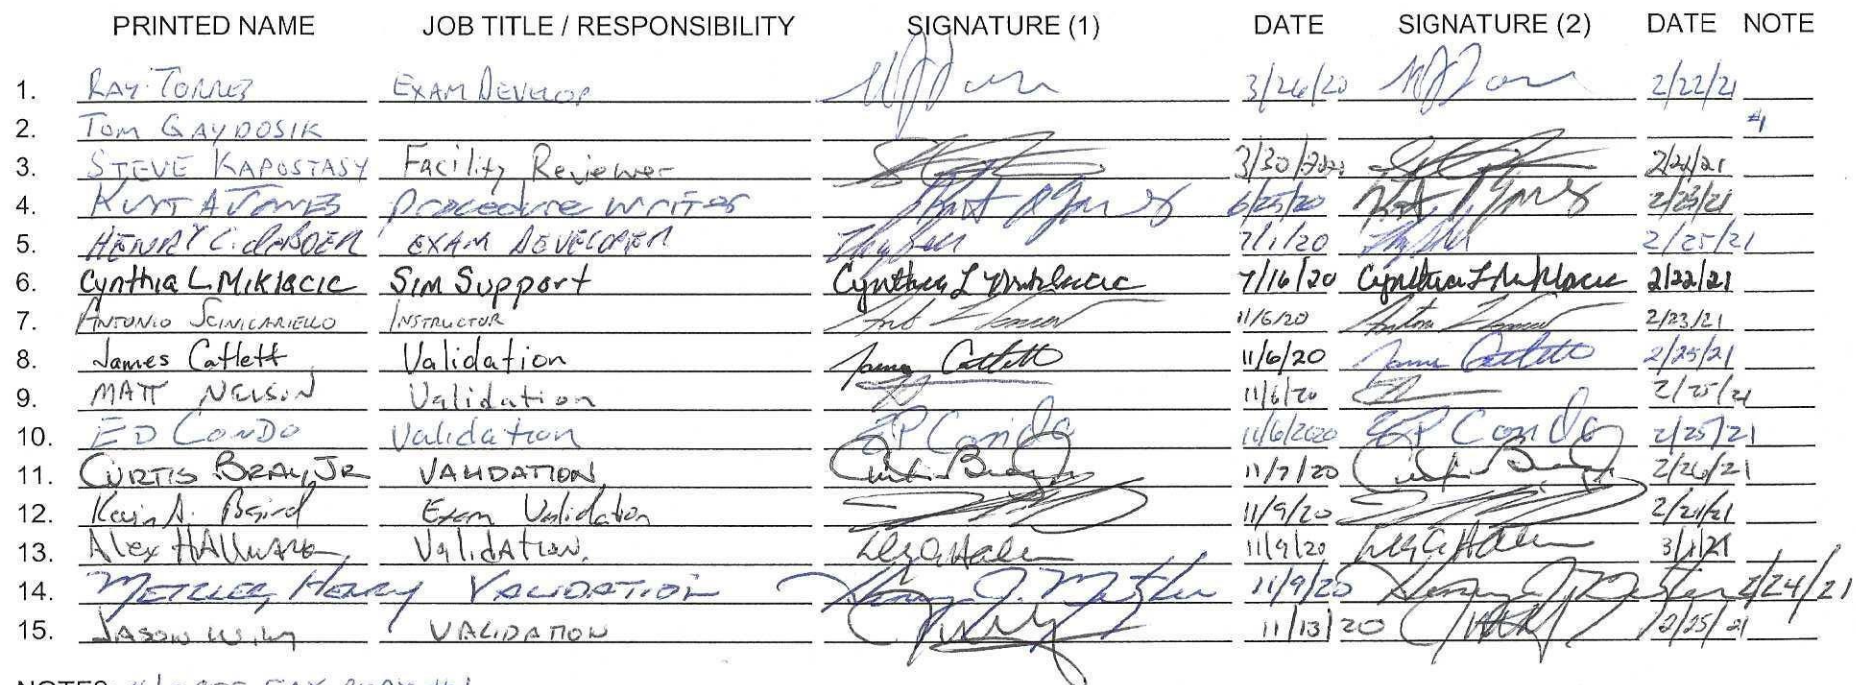 PRINTED NAME JOB TITLE / RESPONSIBILITY SIGNATURE (1) DATE SIGNATURE (2) DATE NOTE
1. RAY TORRES EXAM DEVELOP 3/26/20 2/22/21
2. TOM GAYDOSIK #1
3. STEVE KAPOSTASY Facility Reviewer 3/30/2020 2/21
4. KURT A JONES Procedure writer Kurt A Jones 6/25/20 Kurt A Jones 2/23/21
5. HENRY C. deBOER EXAM DEVELOPER 7/1/20 2/25/21
6. Cynthia L Miklacic Sim Support Cynthia L Miklacic 7/16/20 Cynthia L Miklacic 2/22/21
7. ANTONIO SCINICARIELLO INSTRUCTOR 11/6/20 2/23/21
8. James Catlett Validation James Catlett 11/6/20 James Catlett 2/25/21
9. MATT NELSON Validation 11/6/20 2/25/21
10. ED CONDO Validation EP Condo 11/6/2020 EP Condo 2/25/21
11. CURTIS BRAY, JR VALIDATION 11/7/20 2/26/21
12. Kevin A. Baird Exam Validation 11/9/20 2/21
13. Alex Validation 11/9/20 3/1/21
14. METZLER, HENRY VALIDATION Henry J. Metzler 11/9/20 Henry J. Metzler 2/24/21
15. JASON VALIDATION 11/13/20 2/25/21